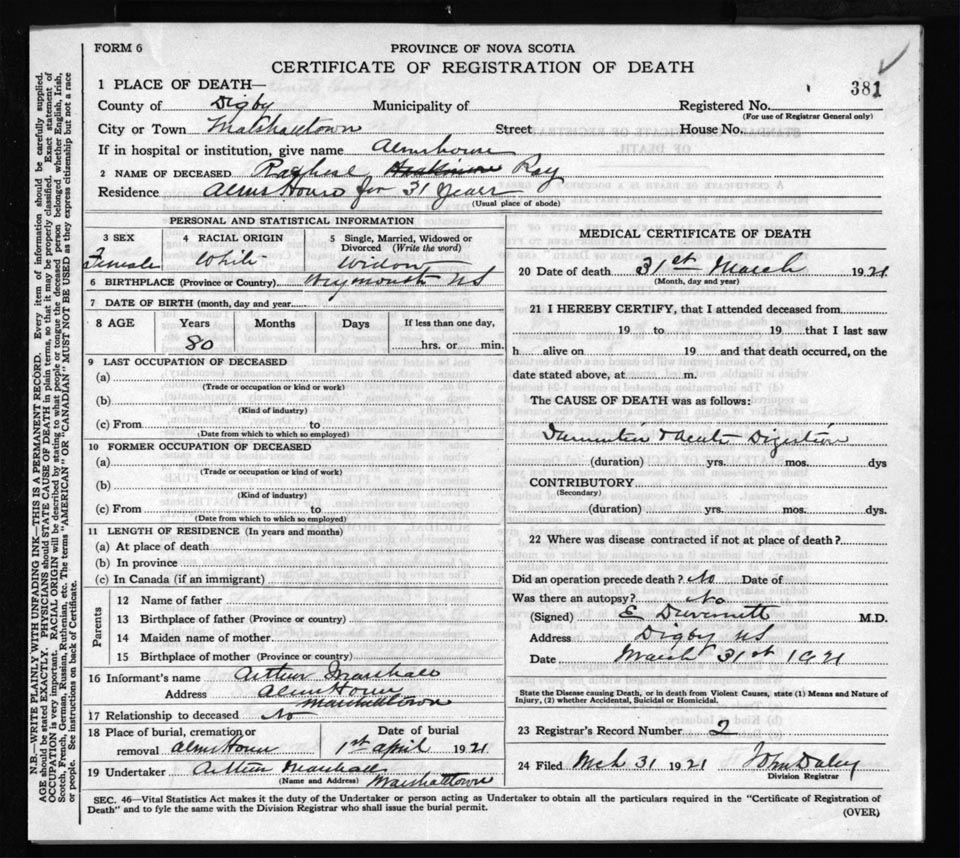 FORM 6
PROVINCE OF NOVA SCOTIA
CERTIFICATE OF REGISTRATION OF DEATH
381
1 PLACE OF DEATH—
County of Digby Municipality of Registered No.
(For use of Registrar General only)
City or Town Marshalltown Street House No.
If in hospital or institution, give name Almshouse
2 NAME OF DECEASED Ray
Residence Alms House for 31 Years
(Usual place of abode)
PERSONAL AND STATISTICAL INFORMATION
3 SEX 4 RACIAL ORIGIN 5 Single, Married, Widowed or Divorced (Write the word)
Female White Widow
6 BIRTHPLACE (Province or Country) Weymouth NS
7 DATE OF BIRTH (month, day and year)
8 AGE Years Months Days If less than one day,
80 hrs. or min.
9 LAST OCCUPATION OF DECEASED
(a)
(Trade or occupation or kind or work)
(b)
(Kind of industry)
(c) From to
(Date from which to which so employed)
10 FORMER OCCUPATION OF DECEASED
(a)
(Trade or occupation or kind or work)
(b)
(Kind of industry)
(c) From to
(Date from which to which so employed)
11 LENGTH OF RESIDENCE (In years and months)
(a) At place of death
(b) In province
(c) In Canada (if an immigrant)
Parents
12 Name of father
13 Birthplace of father (Province or country)
14 Maiden name of mother
15 Birthplace of mother (Province or country)
16 Informant's name Arthur Marshall
Address Alms House
Marshalltown
17 Relationship to deceased No
18 Place of burial, cremation or Date of burial
removal Alms House 1st April 1921
19 Undertaker Arthur Marshall
(Name and Address) Marshalltown
MEDICAL CERTIFICATE OF DEATH
20 Date of death 31st March 1921
(Month, day and year)
21 I HEREBY CERTIFY, that I attended deceased from
19 to 19 that I last saw
h alive on 19 and that death occurred, on the
date stated above, at m.
The CAUSE OF DEATH was as follows:
Digestion
(duration) yrs. mos. dys
CONTRIBUTORY
(Secondary)
(duration) yrs. mos. dys.
22 Where was disease contracted if not at place of death?
Did an operation precede death? No Date of
Was there an autopsy? No
(Signed) E M.D.
Address Digby NS
Date March 31st 1921
State the Disease causing Death, or in death from Violent Causes, state (1) Means and Nature of
Injury, (2) whether Accidental, Suicidal or Homicidal.
23 Registrar's Record Number 2
24 Filed Mch 31 1921 John Daley
Division Registrar
SEC. 46—Vital Statistics Act makes it the duty of the Undertaker or person acting as Undertaker to obtain all the particulars required in the "Certificate of Registration of
Death" and to fyle the same with the Division Registrar who shall issue the burial permit.
(OVER)
N.B.—WRITE PLAINLY WITH UNFADING INK—THIS IS A PERMANENT RECORD. Every item of information should be carefully supplied.
AGE should be stated EXACTLY. PHYSICIANS should STATE CAUSE OF DEATH in plain terms, so that it may be properly classified. Exact statement of
OCCUPATION is very important. RACIAL ORIGIN will be described by stating to what people or tongue the deceased person belonged whether English, Irish,
Scotch, French, German, Russian, Ruthenian, etc. The terms "AMERICAN" OR "CANADIAN" MUST NOT BE USED as they express citizenship but not a race
or people. See instructions on back of Certificate.